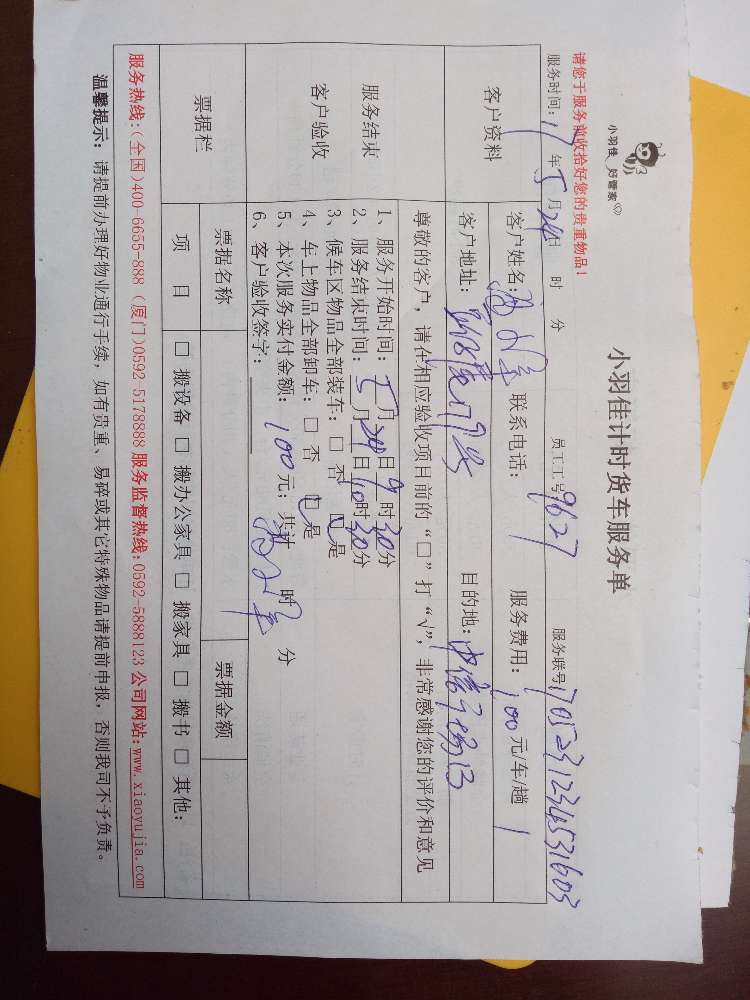 小羽佳 好管家
小羽佳计时货车服务单
请您于服务前收拾好您的贵重物品！
服务时间：17年5月24日 时 分 员工工号9627 服务联号1705231234531603
客户资料
客户姓名： 联系电话： 服务费用：100元/车/趟
客户地址： 目的地：
尊敬的客户，请在相应验收项目前的“□”打“√”，非常感谢您的评价和意见
服务结束
客户验收
1、服务开始时间：5月24日9时30分
2、服务结束时间：5月24日10时30分
3、候车区物品全部装车：□ 否 □是
4、车上物品全部卸车：□ 否 □是
5、本次服务实付金额：100元；共计 时 分
6、客户验收签字：
票据栏
票据名称 票据金额
项 目 □ 搬设备 □ 搬办公家具 □ 搬家具 □ 搬书 □ 其他：
服务热线：(全国)400-6655-888 (厦门)0592-5178888 服务监督热线：0592-5888123 公司网站：www.xiaoyujia.com
温馨提示：请提前办理好物业通行手续，如有贵重、易碎或其它特殊物品请提前申报，否则我司不予负责。